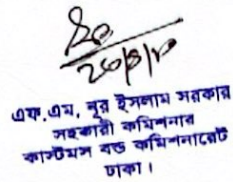 এফ.এম. নূর ইসলাম সরকার
সহকারী কমিশনার
কাস্টমস বন্ড কমিশনারেট
ঢাকা।